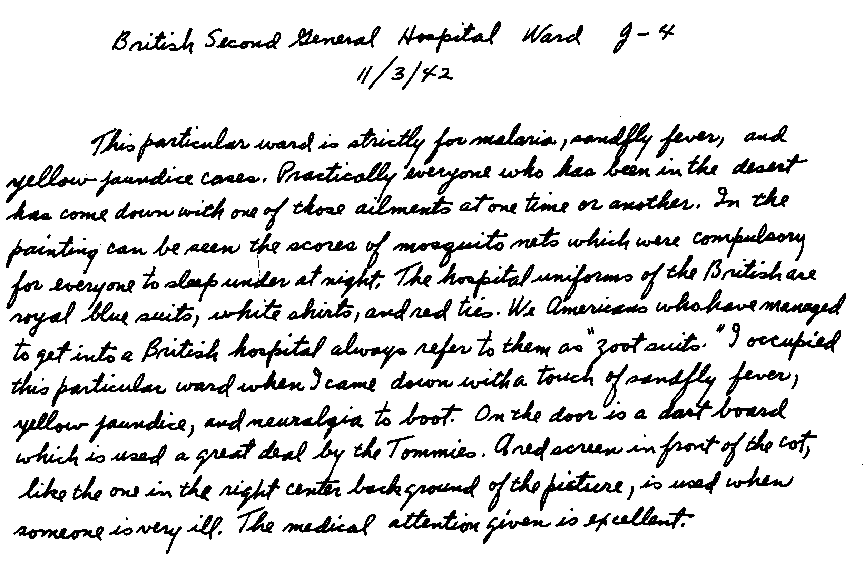 British Second General Hospital Ward G-4
11/3/42
This particular ward is strictly for malaria, sandfly fever, and
yellow jaundice cases. Practically everyone who has been in the desert
has come down with one of those ailments at one time or another. In the
painting can be seen the scores of mosquito nets which were compulsory
for everyone to sleep under at night. The hospital uniforms of the British are
royal blue suits, white shirts, and red ties. We Americans who have managed
to get into a British hospital always refer to them as "zoot suits." I occupied
this particular ward when I came down with a touch of sandfly fever,
yellow jaundice, and neuralgia to boot. On the door is a dart board
which is used a great deal by the Tommies. A red screen in front of the cot,
like the one in the right center background of the picture, is used when
someone is very ill. The medical attention given is excellent.